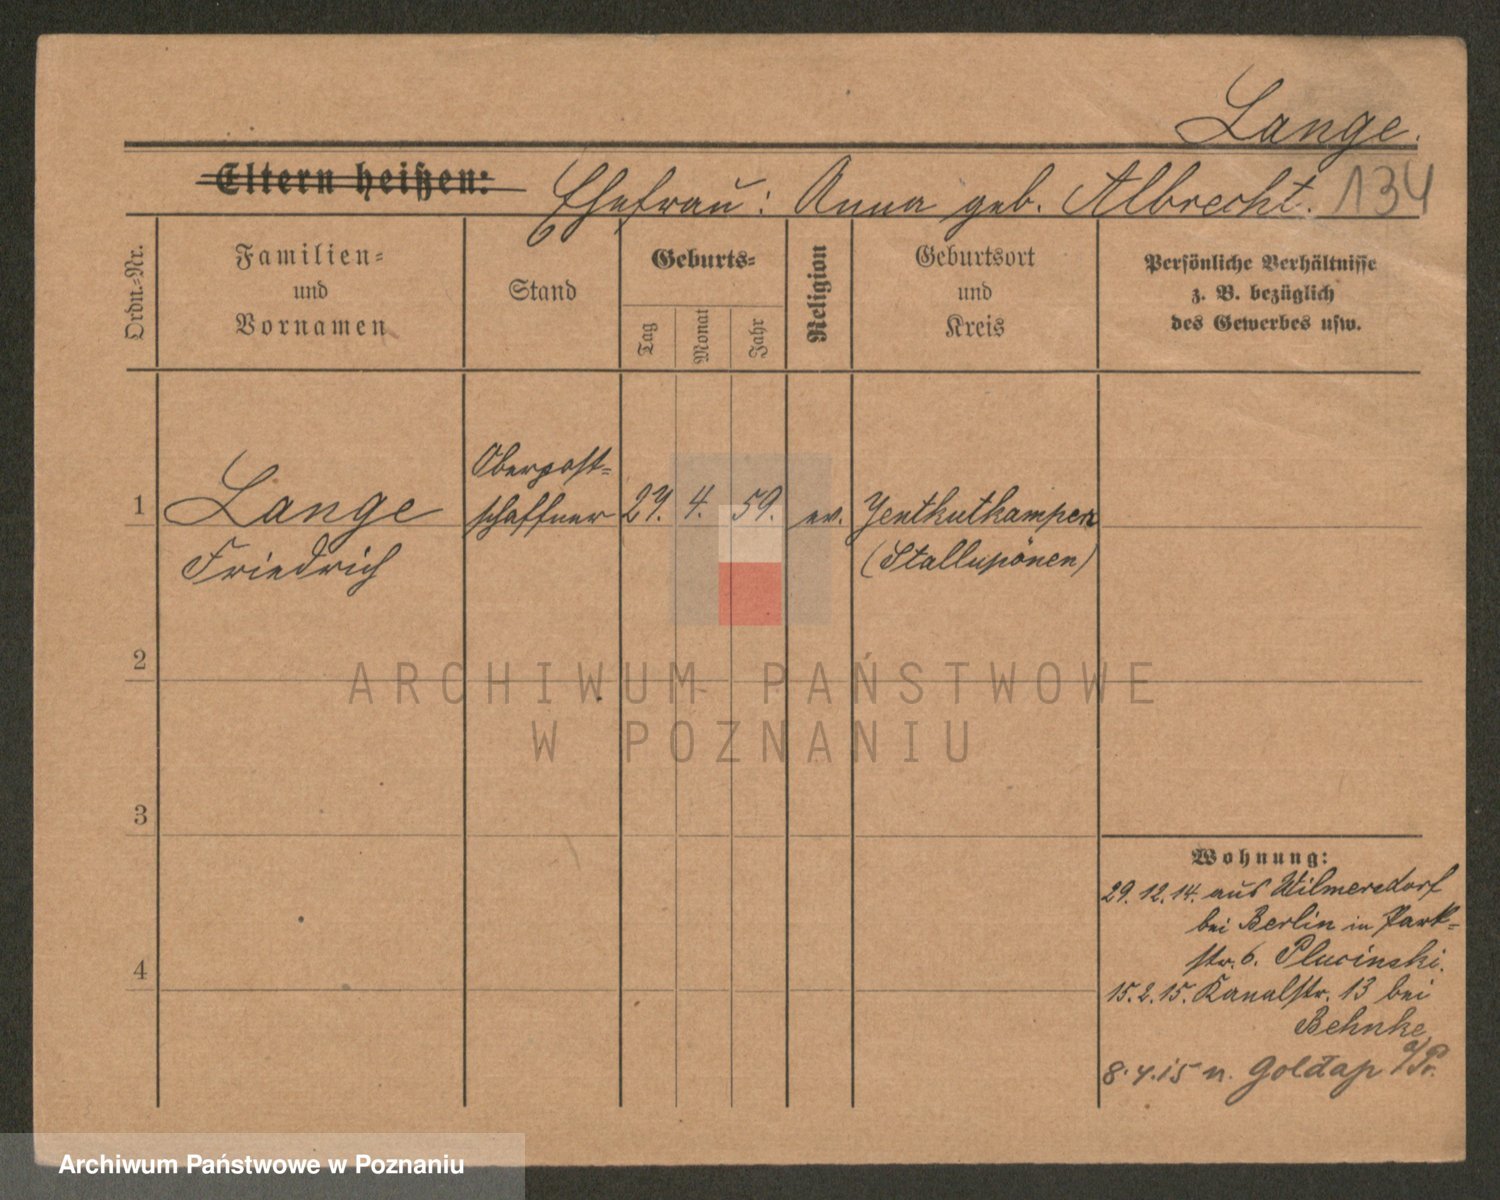 Lange.
Eltern heißen: Ehefrau: Anna geb. Albrecht. 134
Ordn.-Nr.
Familien-
und
Vornamen
Stand
Geburts-
Tag
Monat
Jahr
Religion
Geburtsort
und
Kreis
Persönliche Verhältnisse
z. B. bezüglich
des Gewerbes usw.
1
Lange
Friedrich
Oberpost-
schaffner
27. 4. 59. ev.
Jentkutkampen
(Stallupönen)
2
ARCHIWUM PAŃSTWOWE
W POZNANIU
3
4
Wohnung:
29. 12. 14. aus Wilmersdorf
bei Berlin in Park-
str. 6. Plucinski.
15. 2. 15. Kanalstr. 13 bei
Behnke
8. 4. 15 n. Goldap o/Pr.
Archiwum Państwowe w Poznaniu